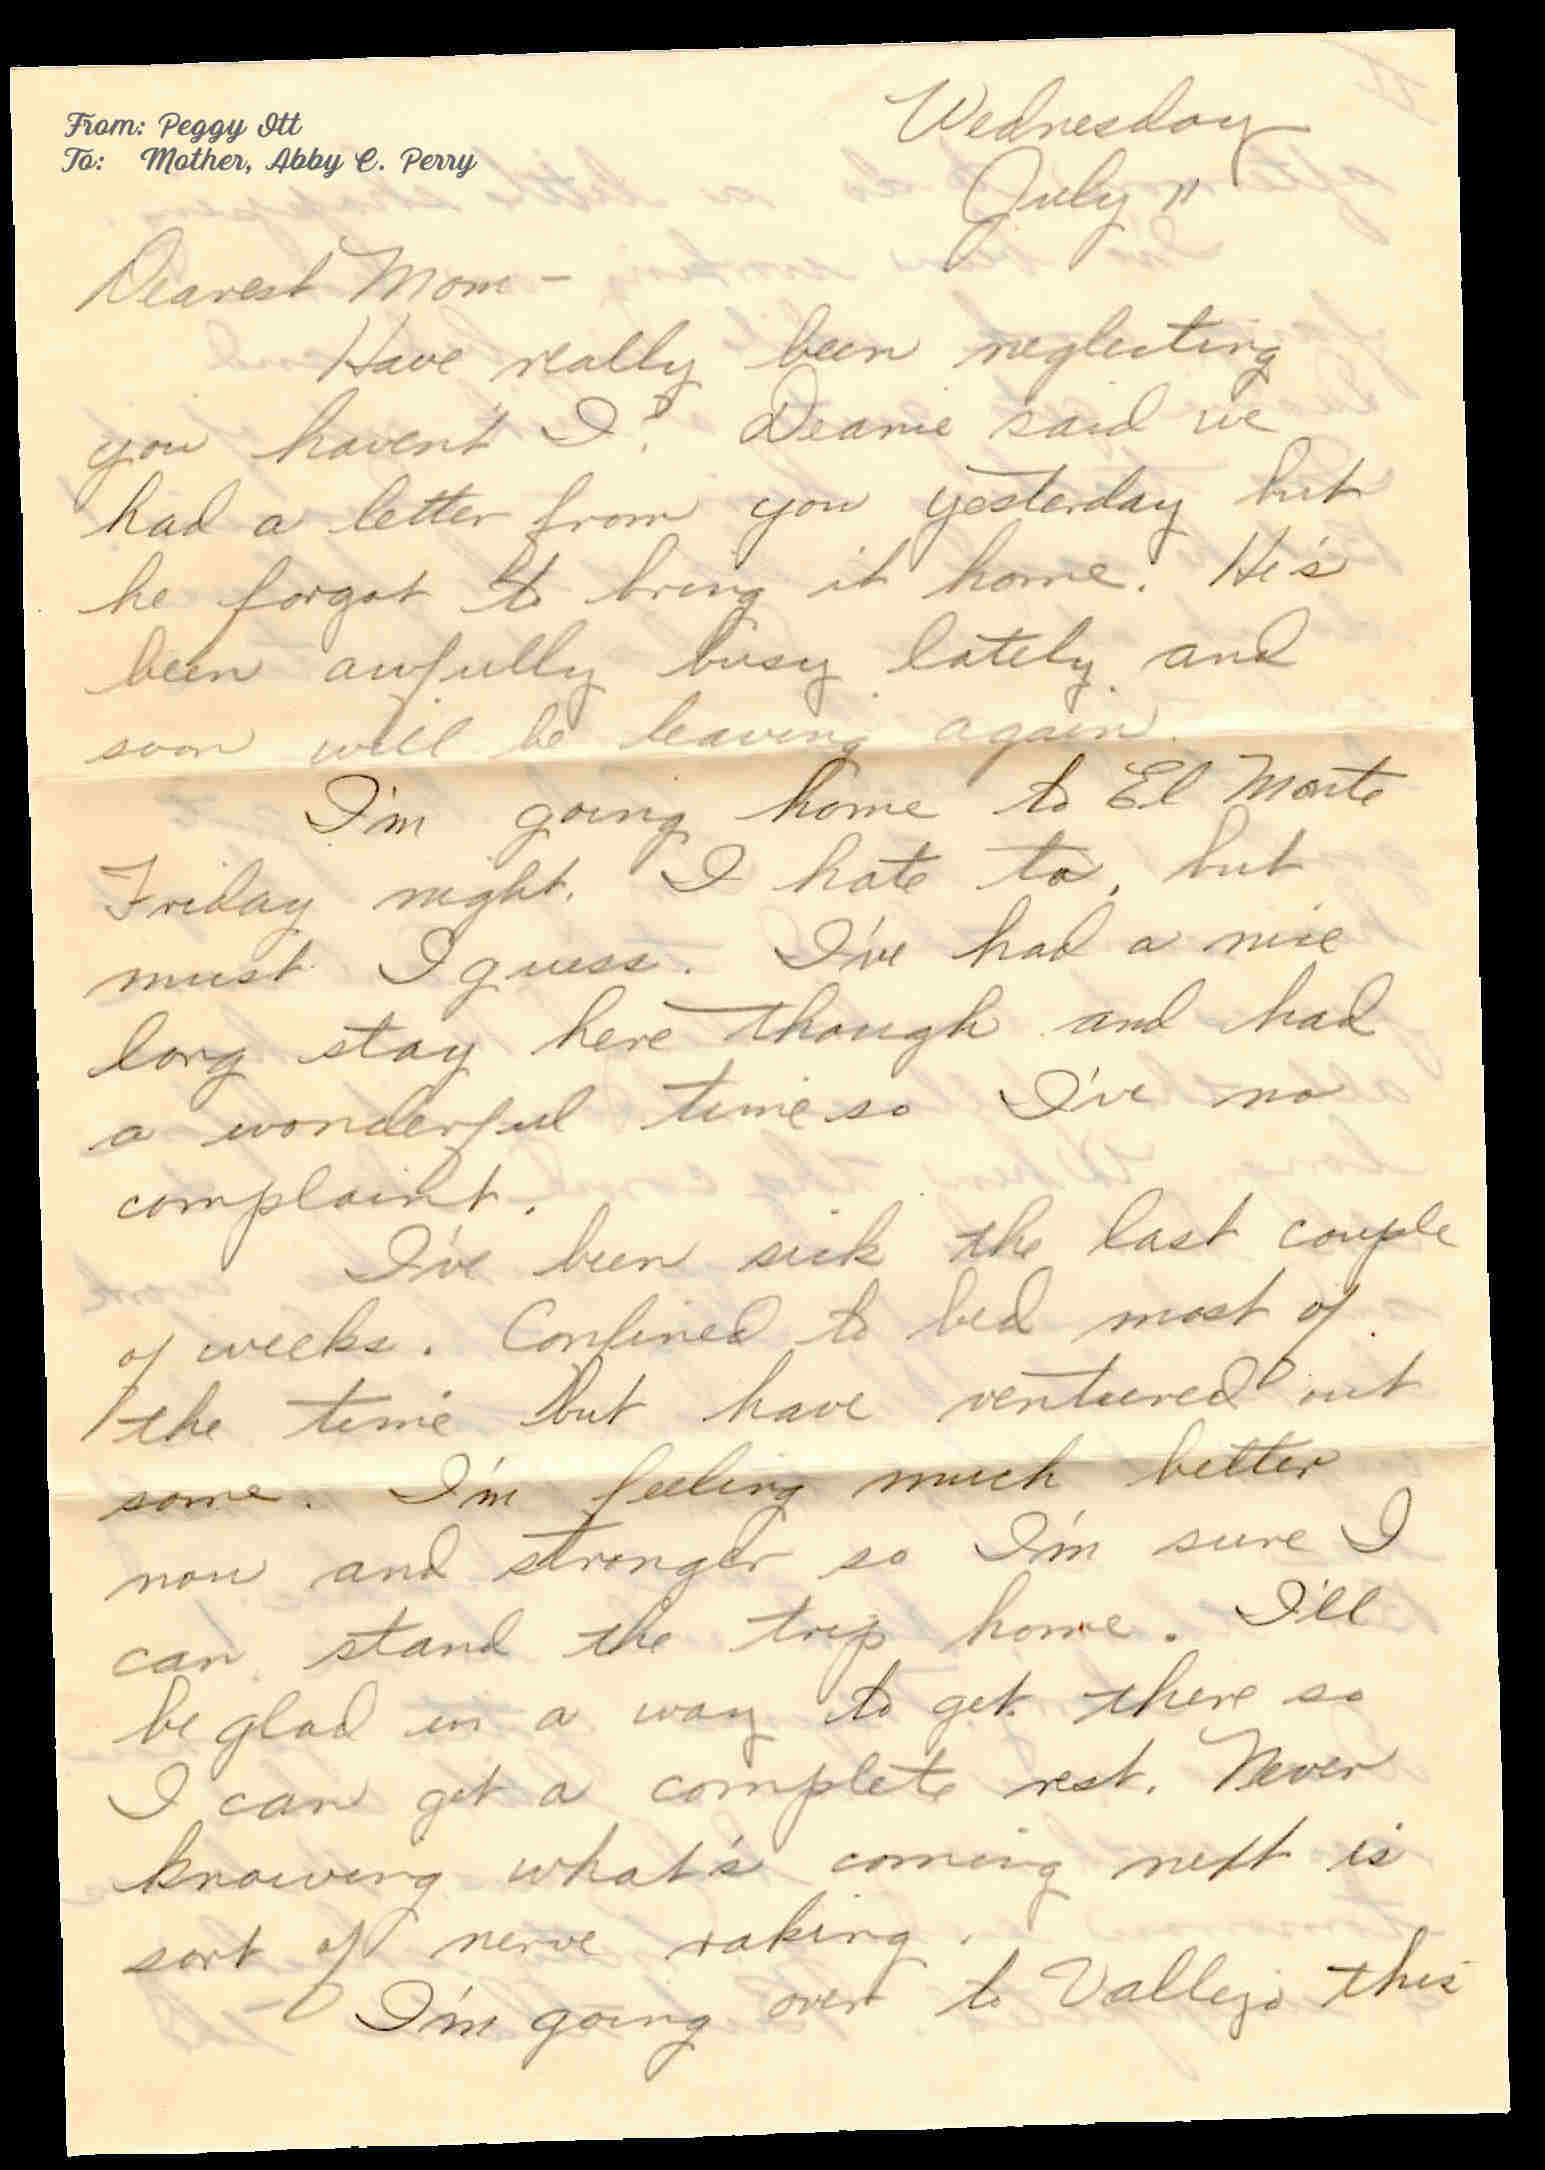 From: Peggy Ott
To: Mother, Abby C. Perry
Wednesday
July 11
Dearest Mom -
Have really been neglecting
you haven't I? Deanie said we
had a letter from you yesterday but
he forgot to bring it home. He's
been awfully busy lately and
soon will be leaving again.
I'm going home to El Monte
Friday night. I hate to, but
must I guess. I've had a nice
long stay here though and had
a wonderful time so I've no
complaint.
I've been sick the last couple
of weeks. Confined to bed most of
the time but have ventured out
some. I'm feeling much better
now and stronger so I'm sure I
can stand the trip home. I'll
be glad in a way to get there so
I can get a complete rest. Never
knowing what's coming next is
sort of nerve raking.
I'm going over to Vallejo this